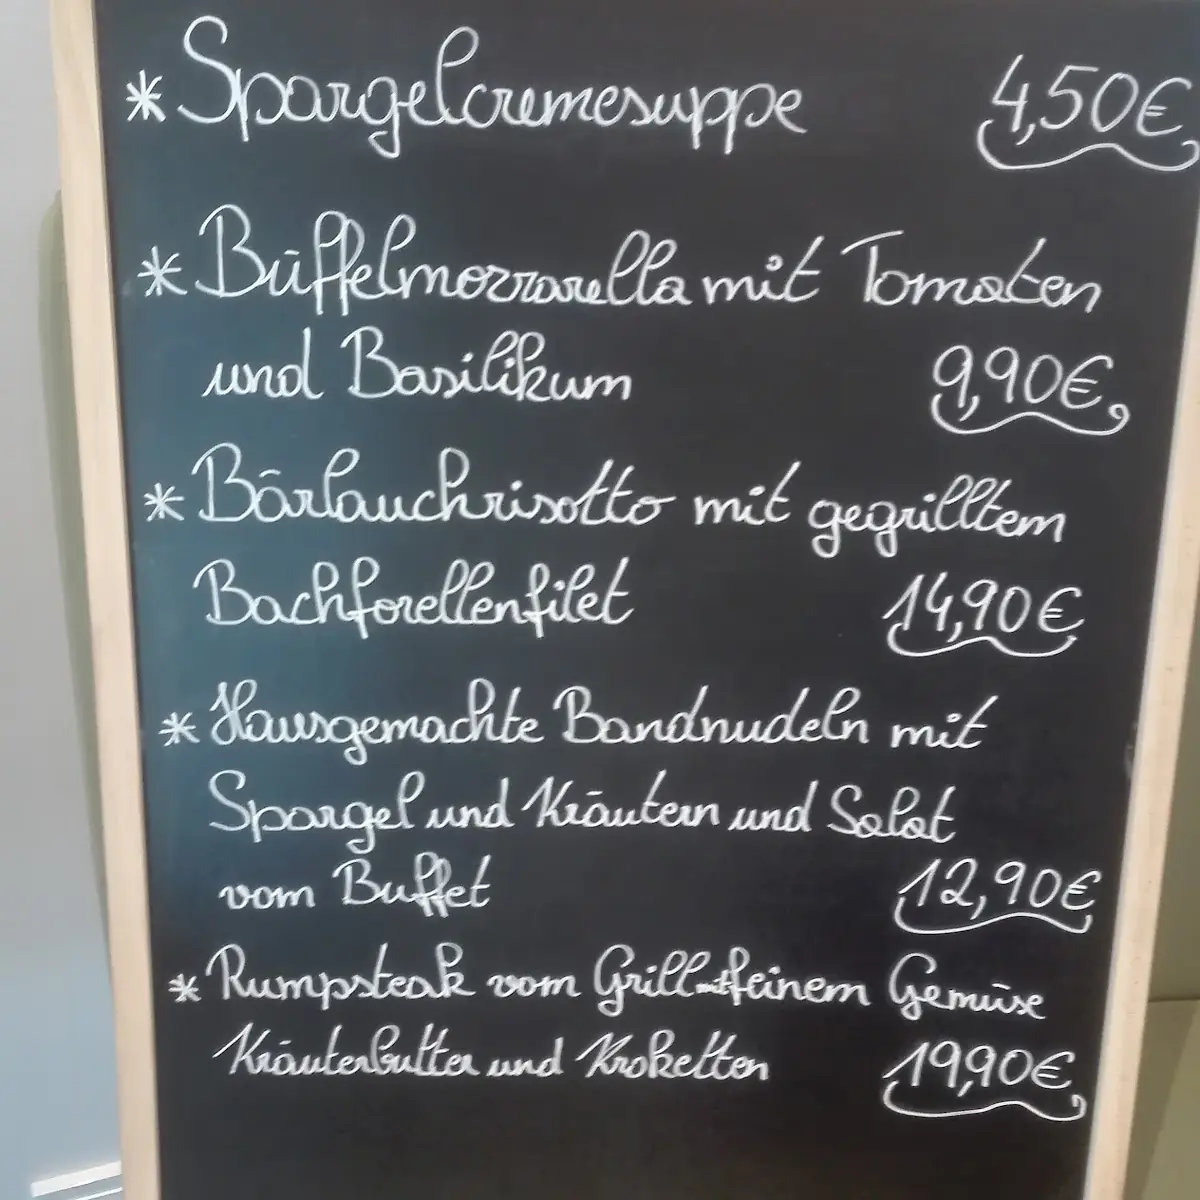 * Spargelcremesuppe 4,50€
* Büffelmozzarella mit Tomaten
und Basilikum 9,90€
* Bärlauchrisotto mit gegrilltem
Bachforellenfilet 14,90€
* Hausgemachte Bandnudeln mit
Spargel und Kräutern und Salat
vom Buffet 12,90€
* Rumpsteak vom Grill mit feinem Gemüse
Kräuterbutter und Kroketten 19,90€